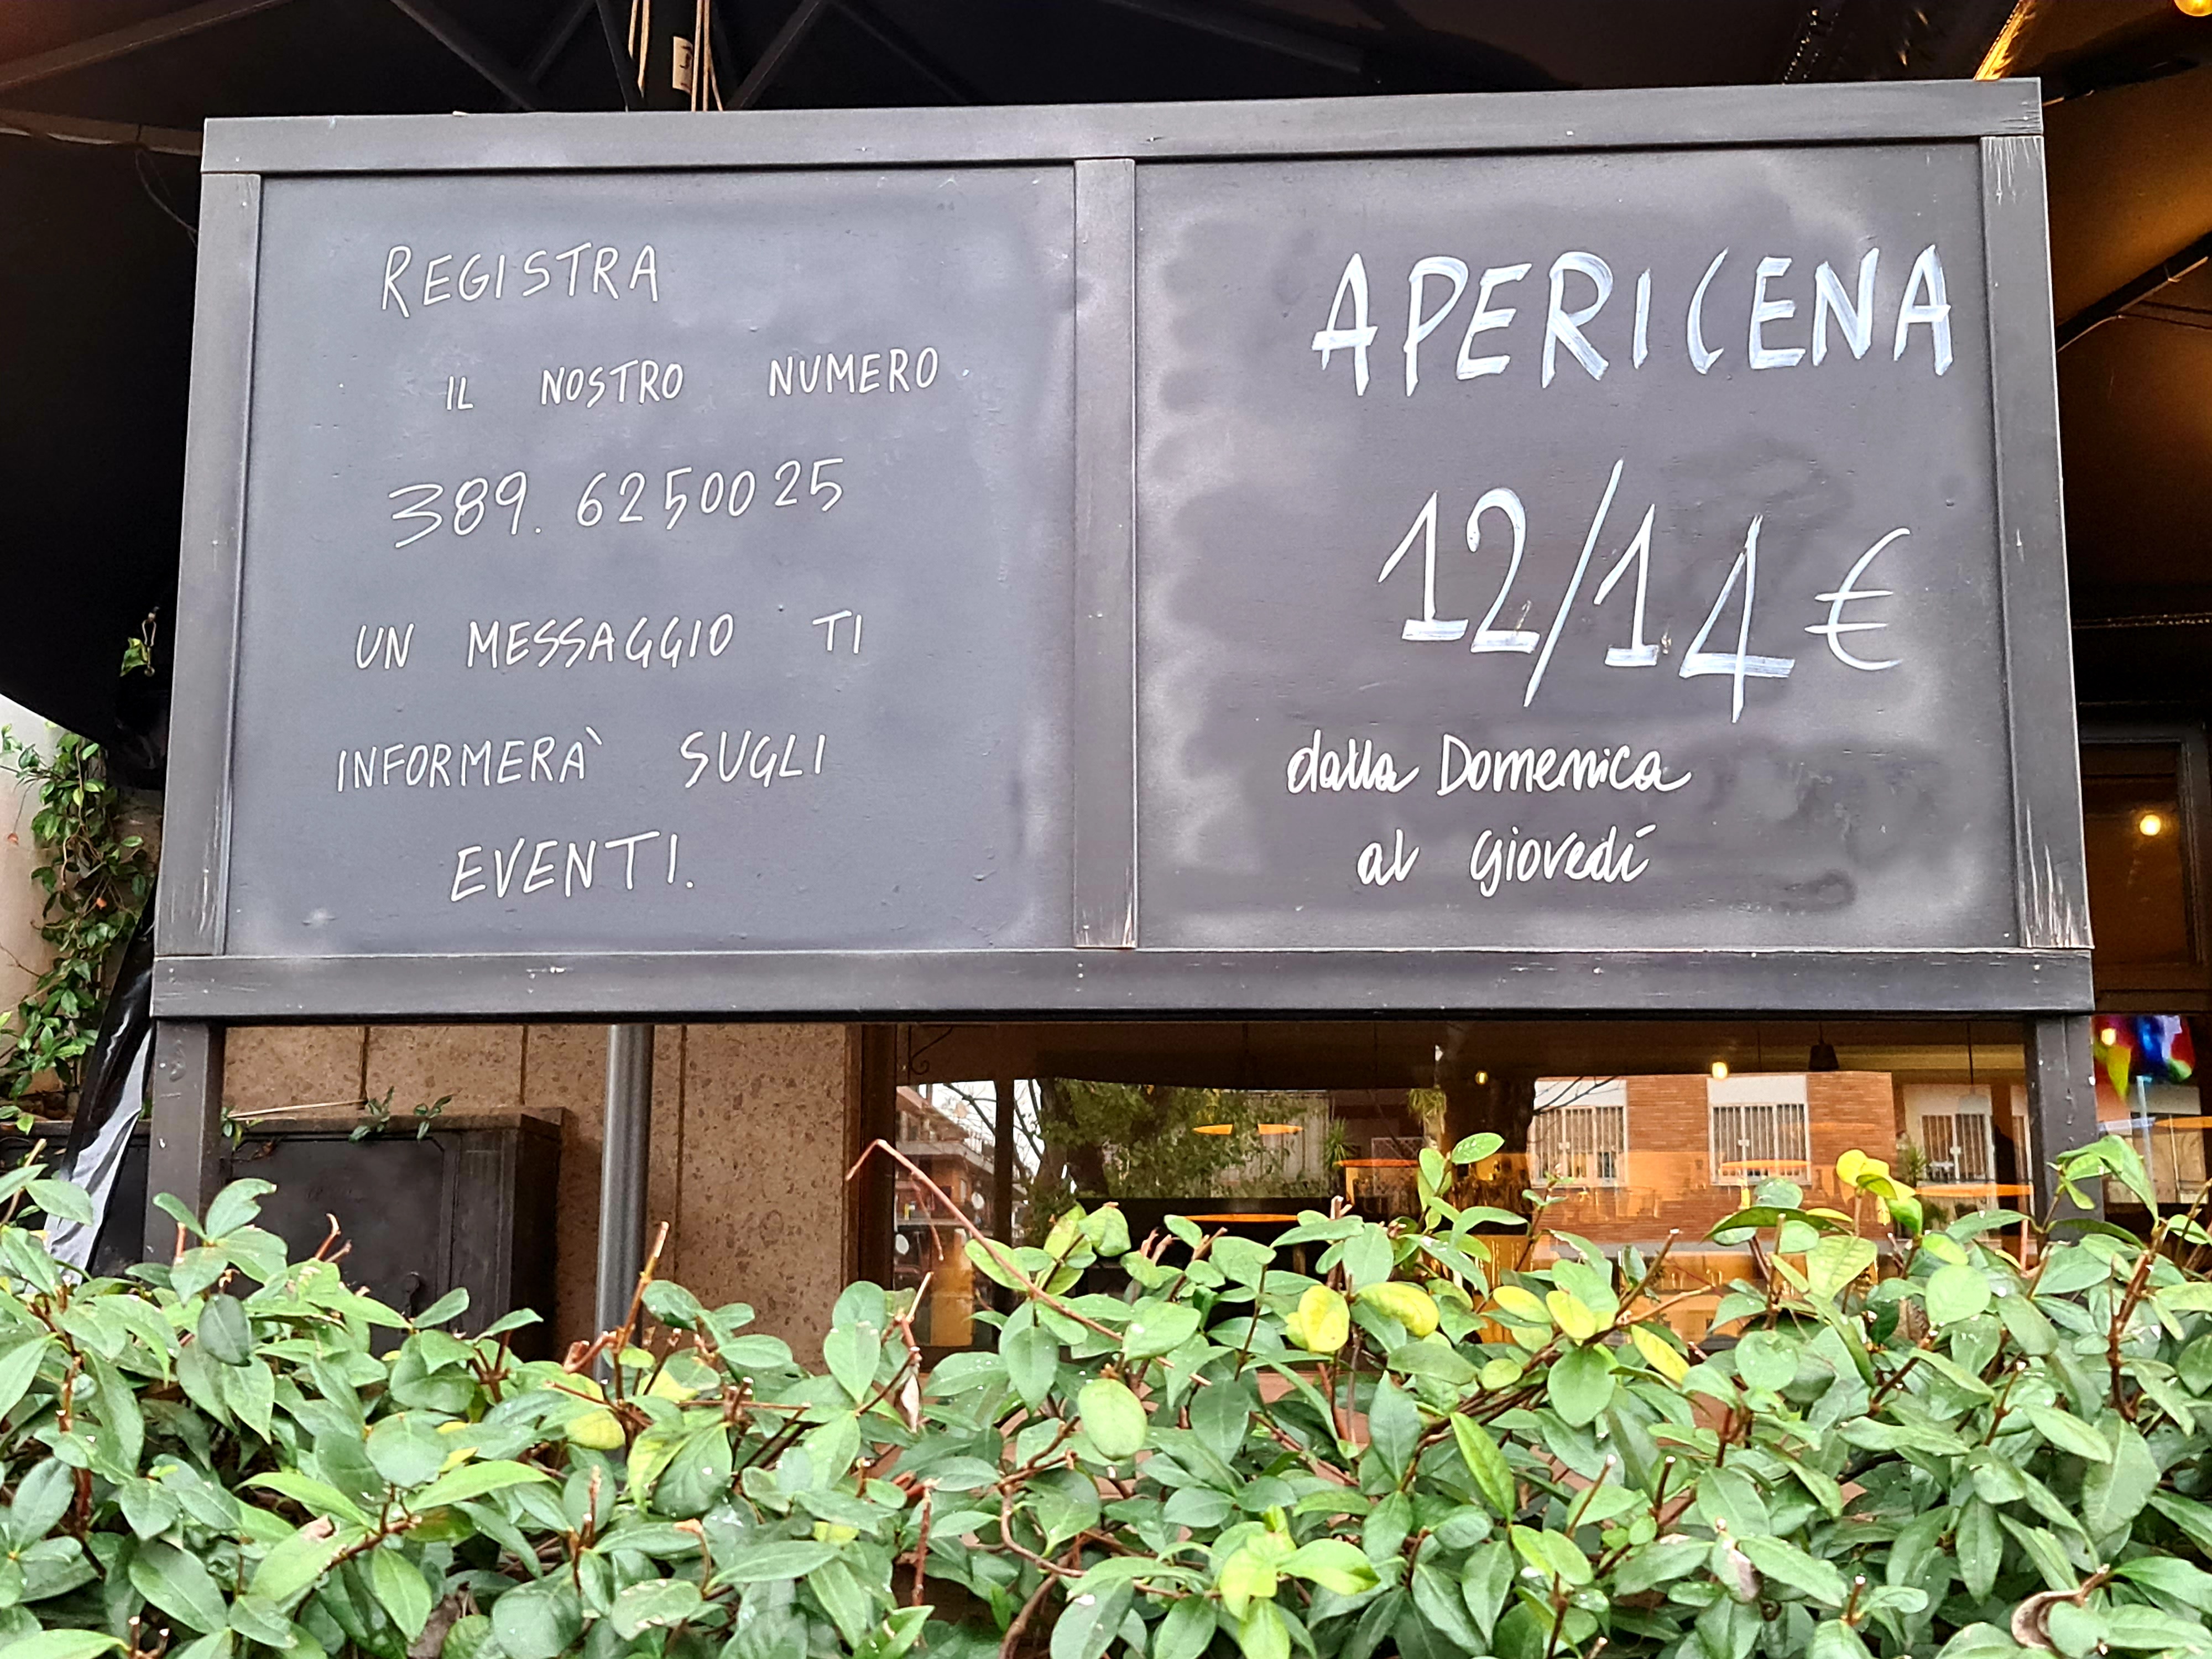 REGISTRA
IL NOSTRO NUMERO
389. 6250025
UN MESSAGGIO TI
INFORMERÀ SUGLI
EVENTI.
APERICENA
12/14 €
dalla Domenica
al Giovedí